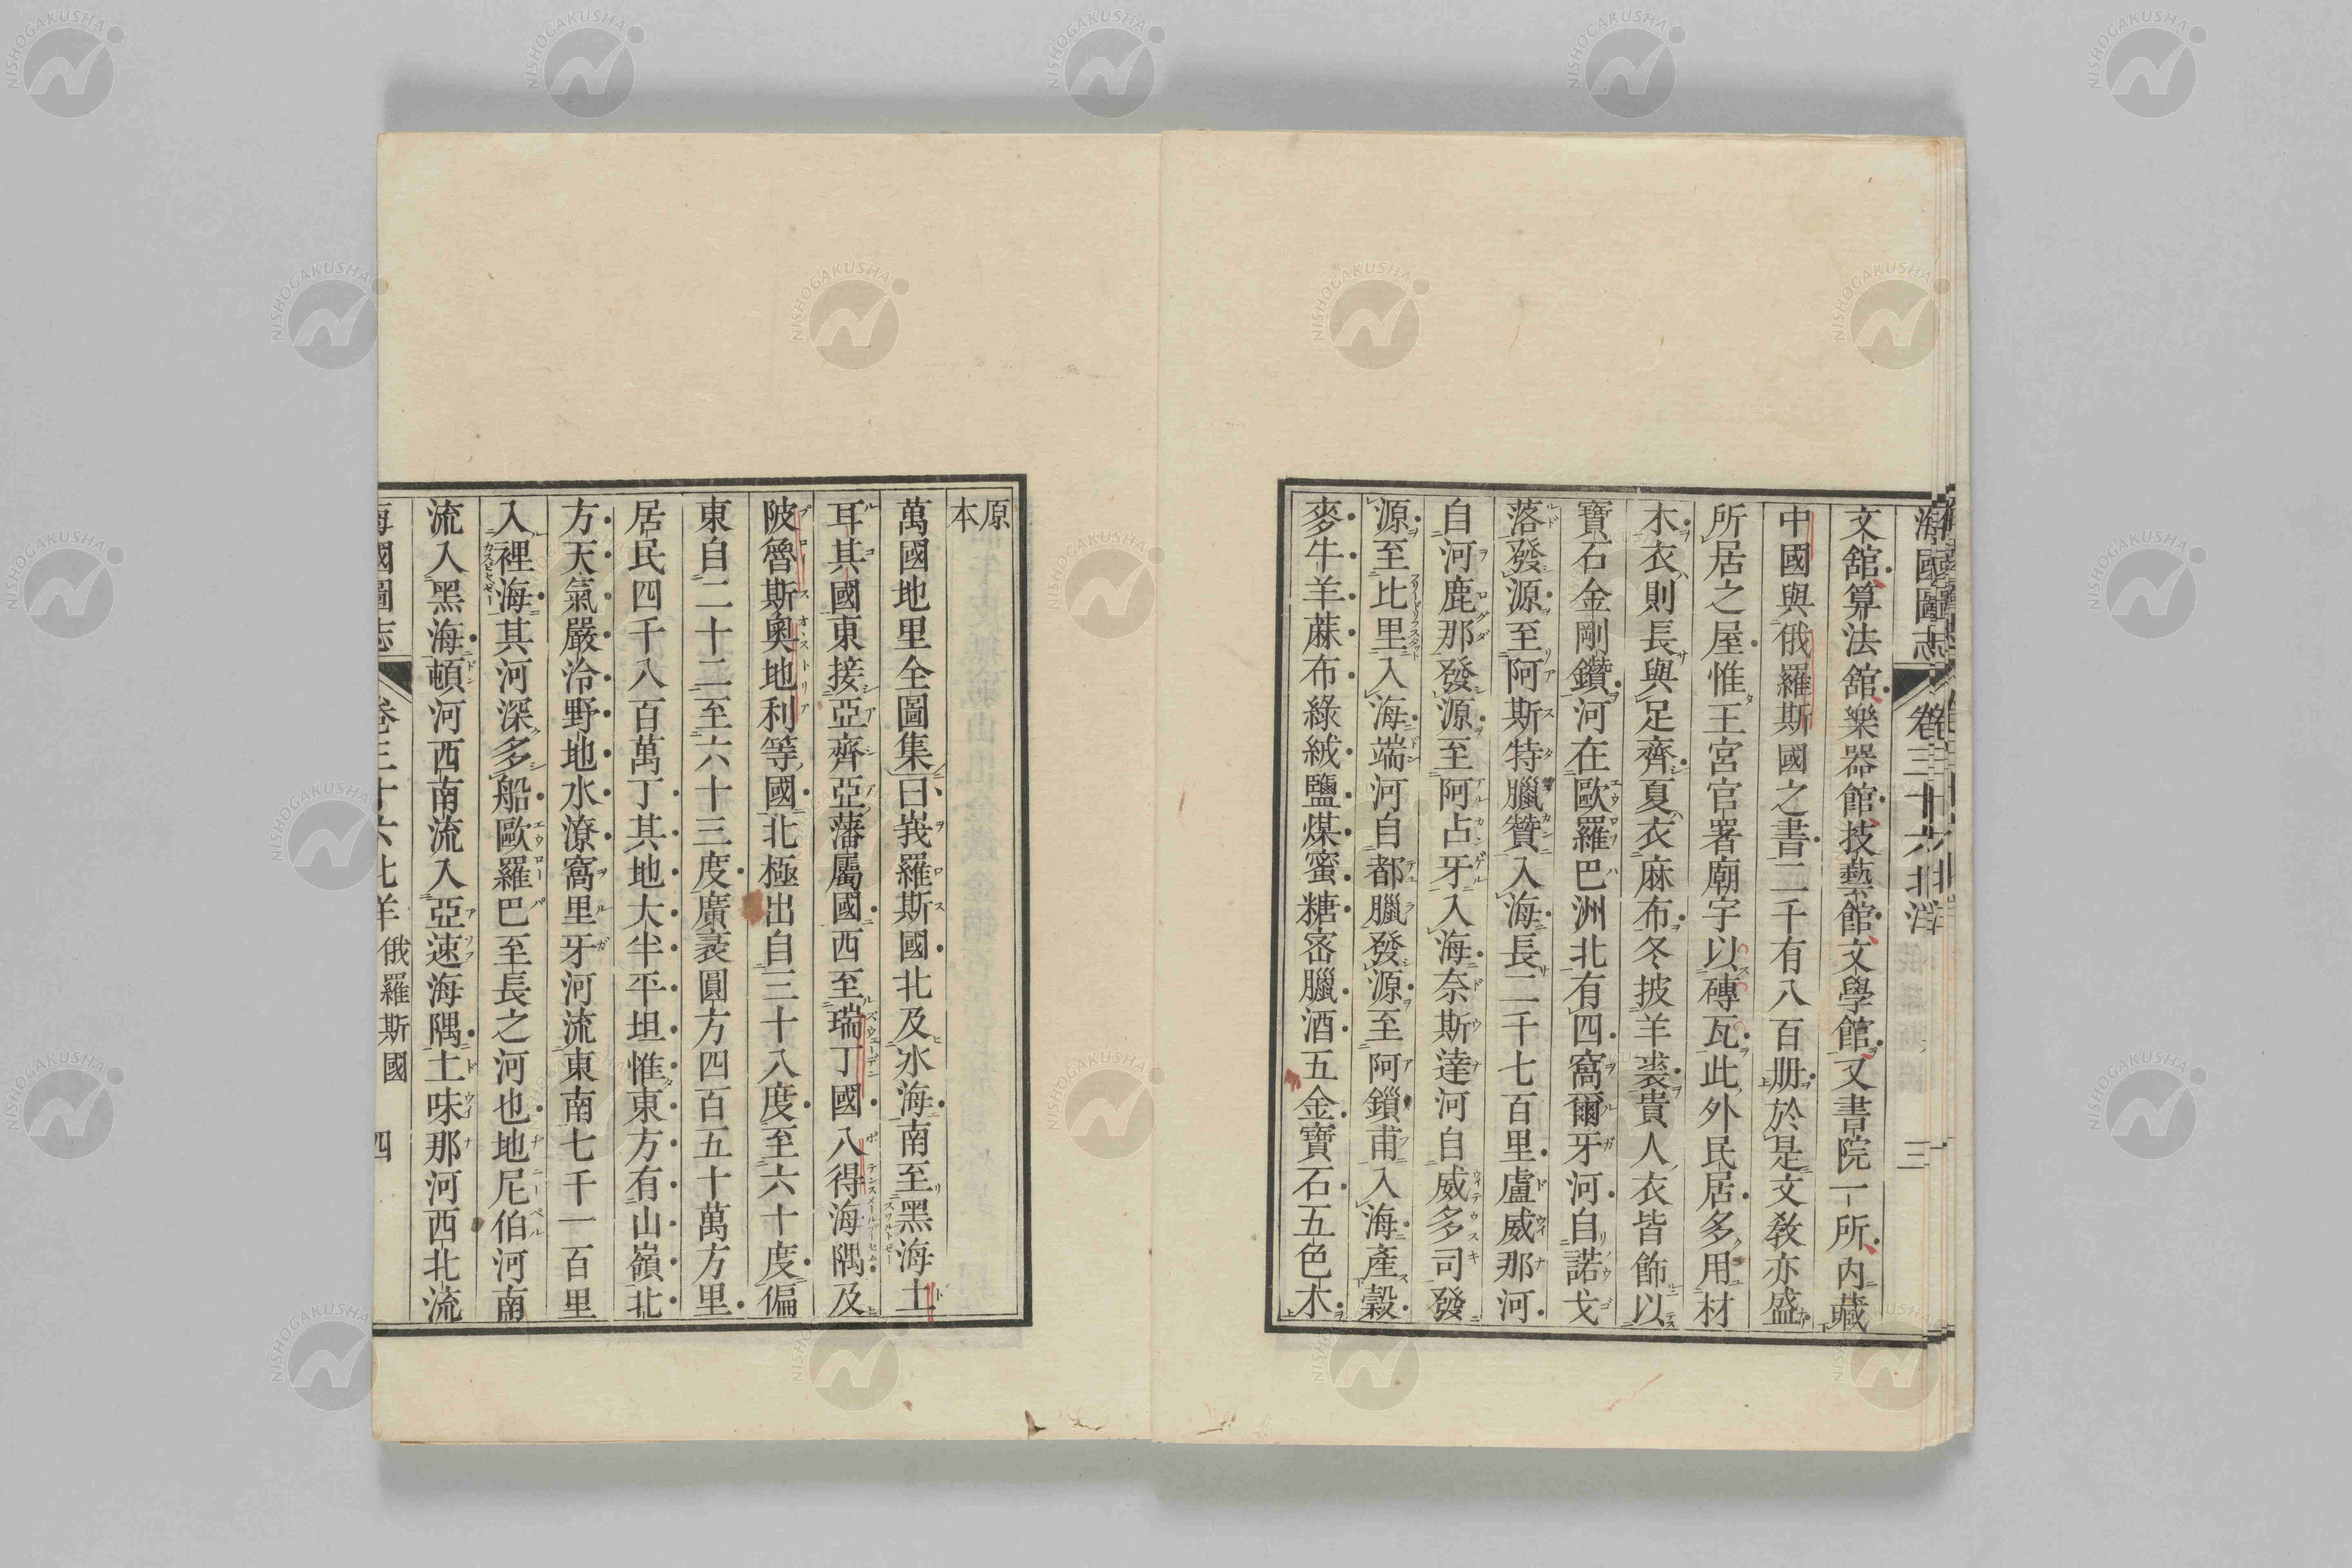 海國圖志 卷三十六 北洋 三
文舘算法舘樂器館技藝館文學館又書院一所內藏
中國與俄羅斯國之書二千有八百册於是文教亦盛
所居之屋惟王宮官署廟宇以磚瓦此外民居多用材
木衣則長與足齊夏衣麻布冬披羊裘貴人衣皆飾以
寶石金剛鑽河在歐羅巴洲北有四窩爾牙河自諾戈
落發源至阿斯特臘贊入海長二千七百里盧威那河
自河鹿那發源至阿占牙入海奈斯達河自威多司發
源至比里入海端河自都臘發源至阿鎻甫入海產穀
麥牛羊蔴布綠絨鹽煤蜜糖宻臘酒五金寶石五色木
原本
萬國地里全圖集曰峩羅斯國北及氷海南至黑海土
耳其國東接亞齊亞藩屬國西至瑞丁國八得海隅及
陂魯斯奧地利等國北極出自三十八度至六十度偏
東自二十二至六十三度廣袤圓方四百五十萬方里
居民四千八百萬丁其地大半平坦惟東方有山嶺北
方天氣嚴冾野地水潦窩里牙河流東南七千一百里
入裡海其河深多船歐羅巴至長之河也地尼伯河南
流入黑海頓河西南流入亞速海隅土味那河西北流
海國圖志 卷三十六 北羊 俄羅斯國 四